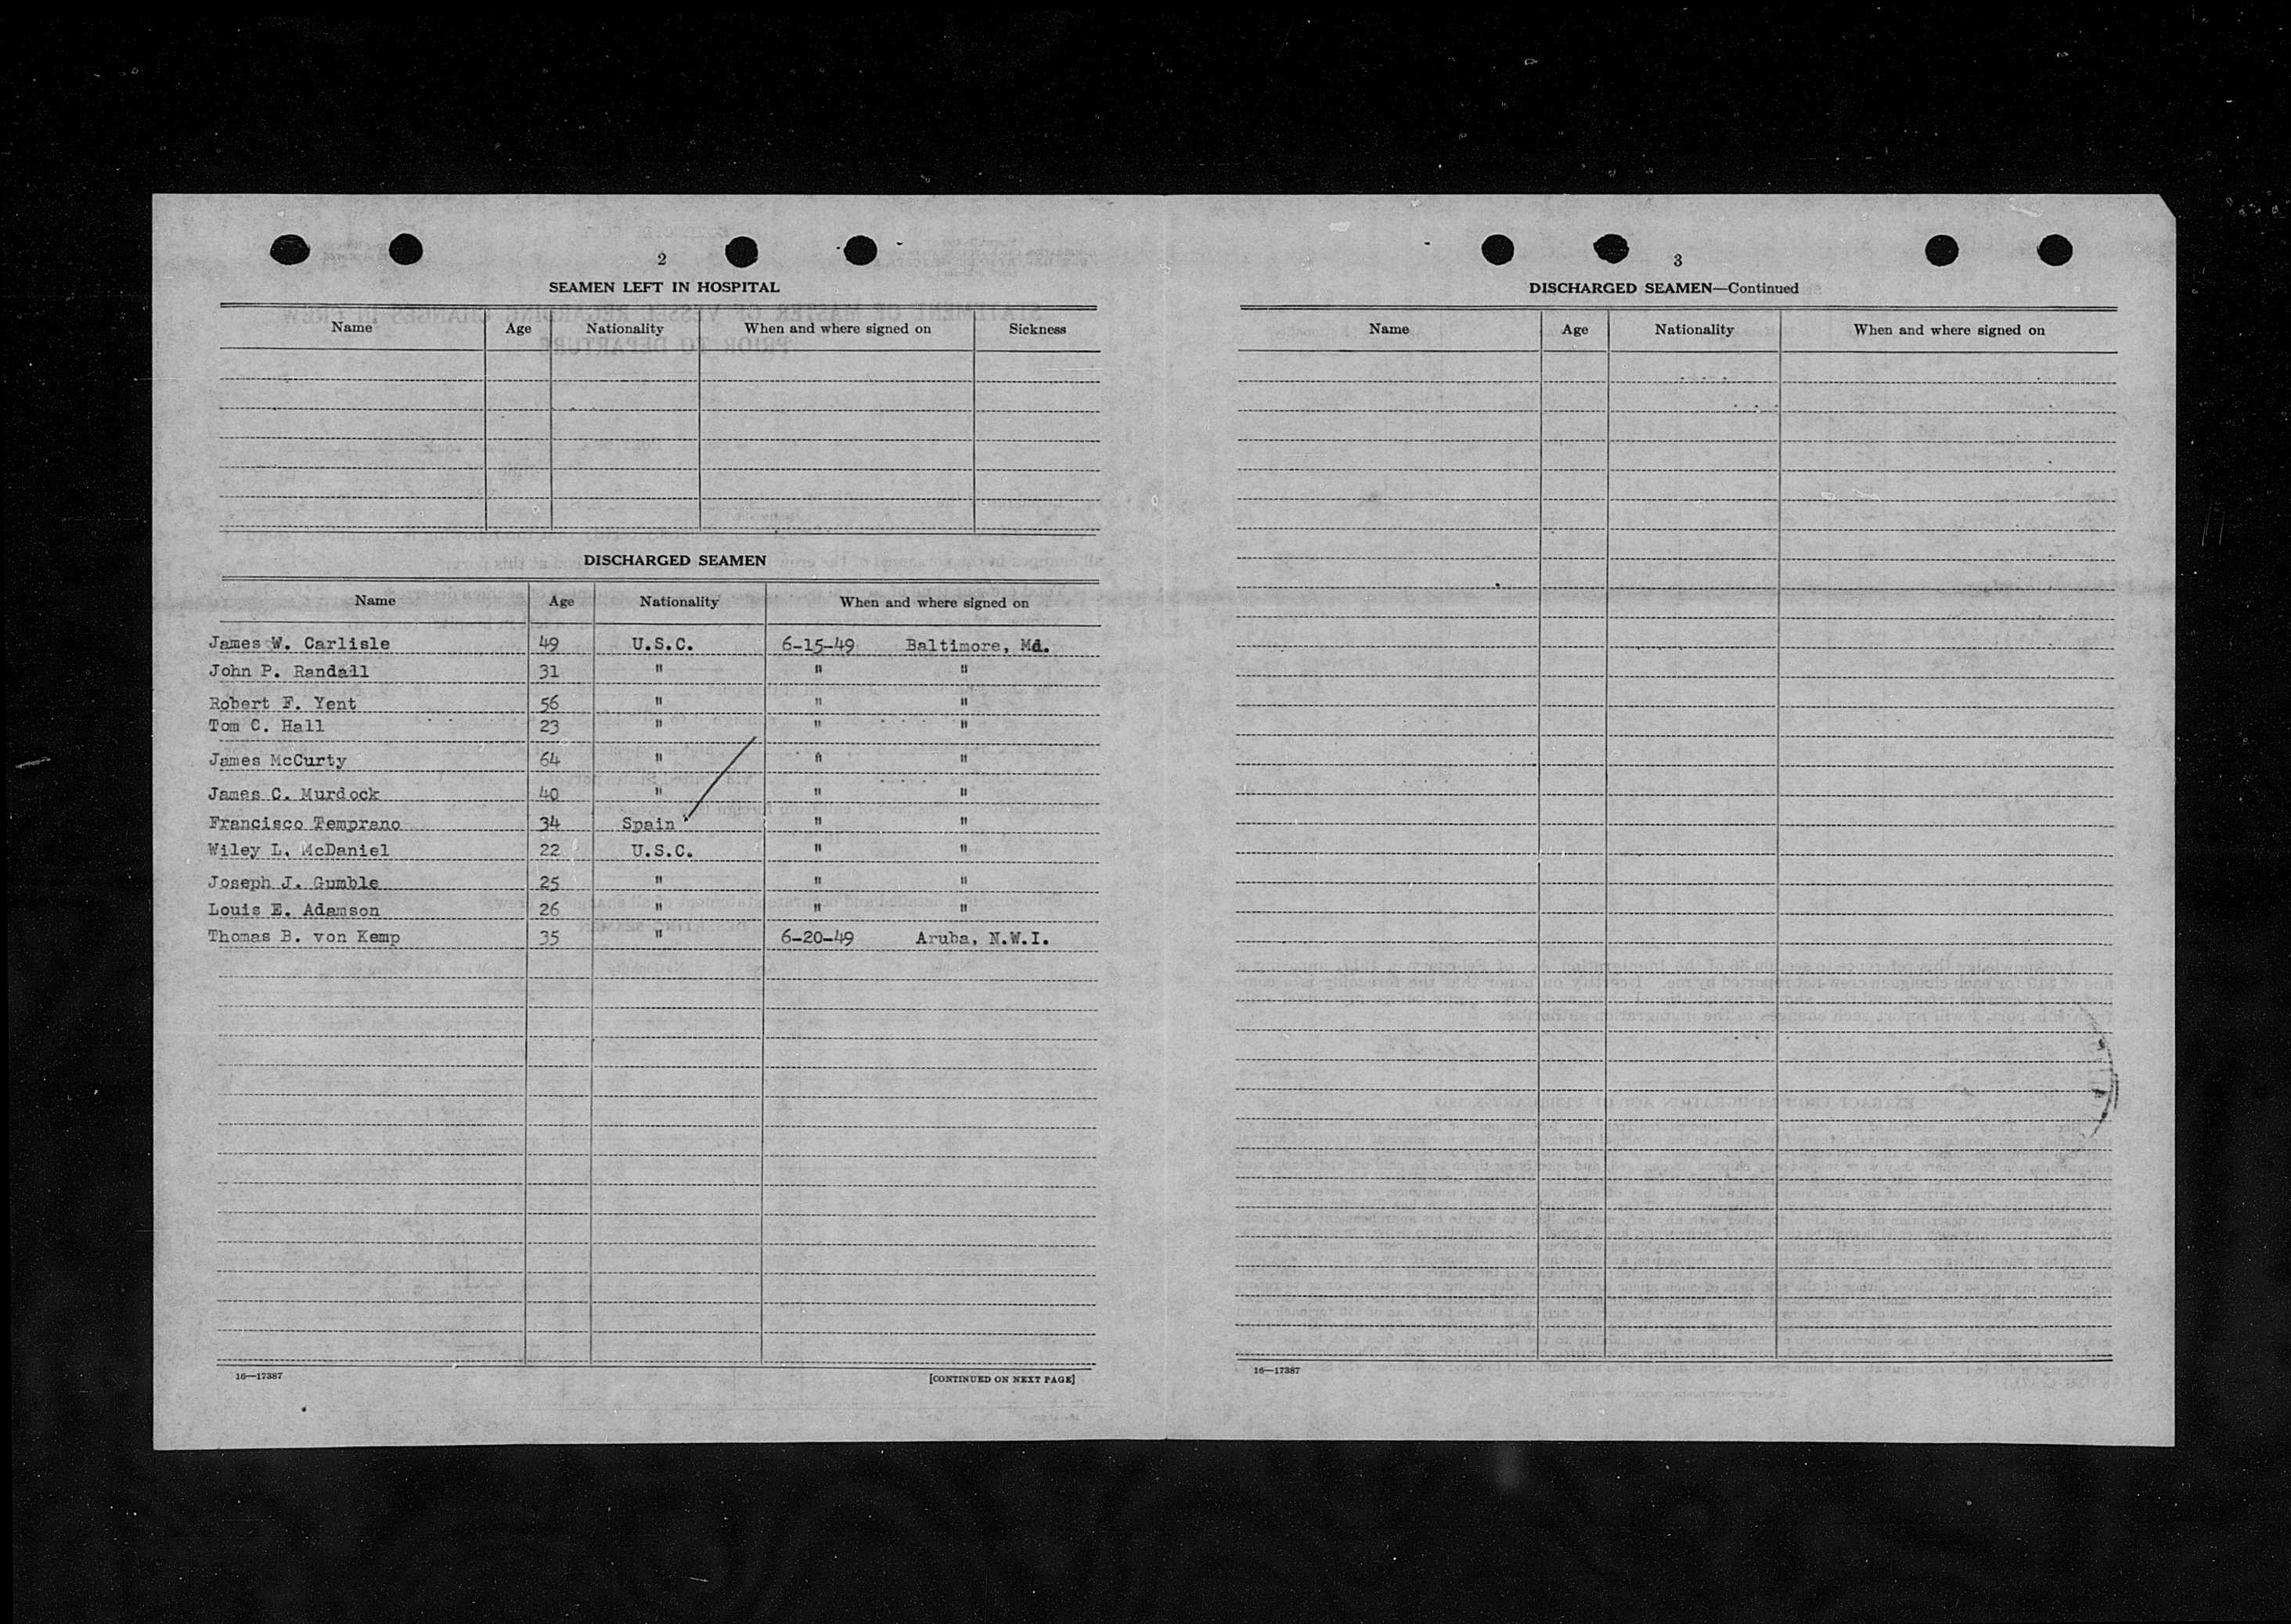 2
SEAMEN LEFT IN HOSPITAL
Name Age Nationality When and where signed on Sickness
DISCHARGED SEAMEN
Name Age Nationality When and where signed on
James W. Carlisle 49 U.S.C. 6-15-49 Baltimore, Md.
John P. Randall 31 " " "
Robert F. Yent 56 " " "
Tom C. Hall 23 " " "
James McCurty 64 " " "
James C. Murdock 40 " " "
Francisco Temprano 34 Spain " "
Wiley L. McDaniel 22 U.S.C. " "
Joseph J. Gumble 25 " " "
Louis E. Adamson 26 " " "
Thomas B. von Kemp 35 " 6-20-49 Aruba, N.W.I.
16—17387 [CONTINUED ON NEXT PAGE]
3
DISCHARGED SEAMEN—Continued
Name Age Nationality When and where signed on
16—17387